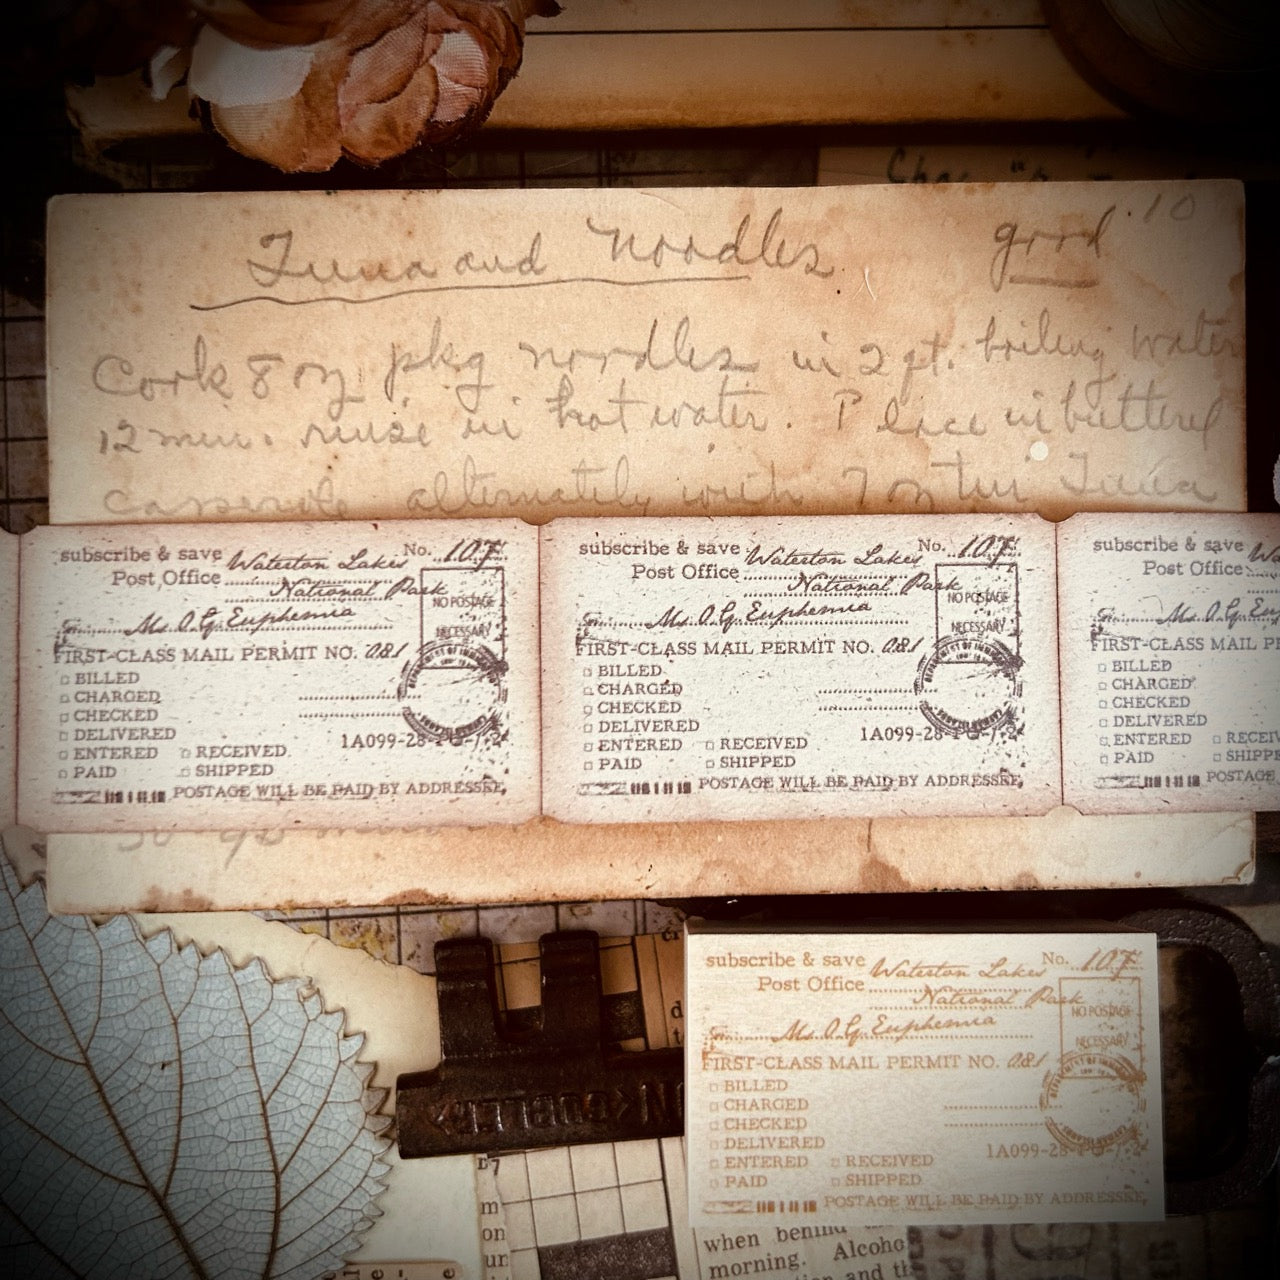 good
Tuna and Noodles
Cook 8 oz pkg noodles in 2 qt. boiling water
12 min. rinse in hot water. Place in buttered
casserole alternately with 7 oz tin Tuna
subscribe & save Waterton Lakes No. 107
Post Office National Park
NO POSTAGE
NECESSARY
Ms. O.G. Euphemia
FIRST-CLASS MAIL PERMIT NO. 081
BILLED
CHARGED
CHECKED
DELIVERED
ENTERED RECEIVED
PAID SHIPPED
1A099-28
POSTAGE WILL BE PAID BY ADDRESSEE,
subscribe & save Waterton Lakes No. 107
Post Office National Park
NO POSTAGE
NECESSARY
Ms. O.G. Euphemia
FIRST-CLASS MAIL PERMIT NO. 081
BILLED
CHARGED
CHECKED
DELIVERED
ENTERED RECEIVED
PAID SHIPPED
1A099-28
POSTAGE WILL BE PAID BY ADDRESSEE,
subscribe & save
Post Office
Ms. O.G.
FIRST-CLASS MAIL
BILLED
CHARGED
CHECKED
DELIVERED
ENTERED
PAID
POSTAGE
subscribe & save Waterton Lakes No. 107
Post Office National Park
NO POSTAGE
NECESSARY
Ms. O.G. Euphemia
FIRST-CLASS MAIL PERMIT NO. 081
BILLED
CHARGED
CHECKED
DELIVERED
ENTERED RECEIVED
PAID SHIPPED
1A099-28
POSTAGE WILL BE PAID BY ADDRESSEE,
when behind
morning. Alcoho
and